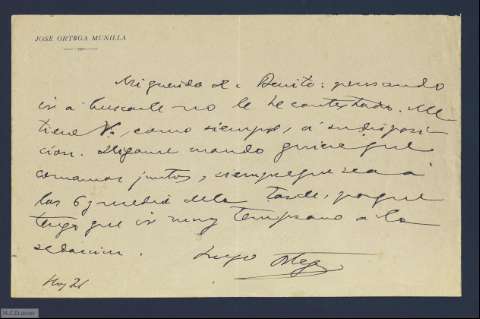 JOSE ORTEGA MUNILLA
Mi querido D. Benito: pensando
ir a buscarle no le he contestado. Me
tiene V., como siempre, á su disposi-
cion. Digame cuando quiere que
comamos juntos, siempre que sea á
las 6 y media de la tarde, porque
tengo que ir muy temprano a la
redaccion. Suyo Ortega
Hoy 21